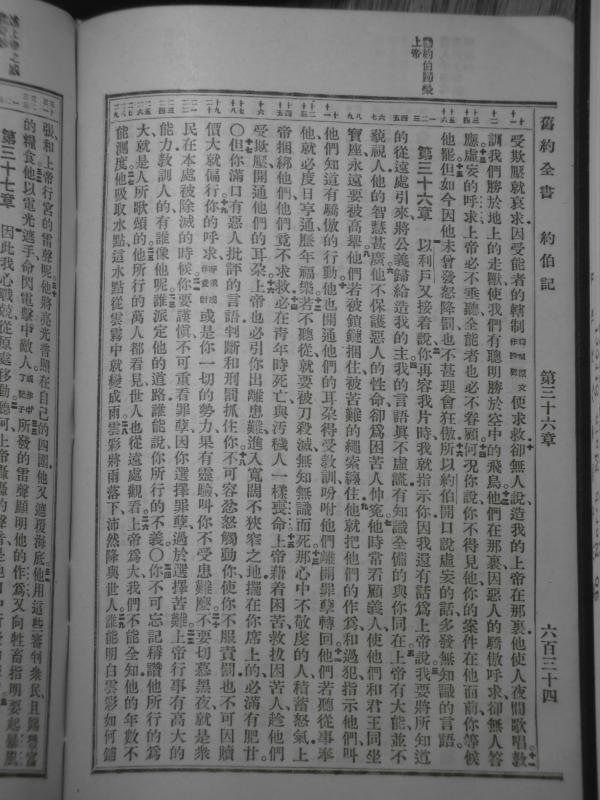 舊約全書 約伯記 第三十六章 六百三十四
約伯歸榮
上帝
受欺壓就哀求因受能者的轄制便求救卻無人說造我的上帝在那裏他使人夜間歌唱教
訓我們勝於地上的走獸使我們有聰明勝於空中的飛鳥他們在那裏因惡人的驕傲呼求卻無人答
應虛妄的呼求上帝必不垂聽全能者也必不眷顧何况你說你不得見他你的案件在他面前你等候
他罷但如今因他未曾發怒降罰也不甚理會狂傲所以約伯開口說虛妄的話多發無知識的言語
第三十六章 以利戶又接着說你再容我片時我就指示你因我還有話爲上帝說我要將所知道
的從遠處引來將公義歸給造我的主我的言語眞不虛謊有知識全備的與你同在上帝有大能並不
藐視人他的智慧甚廣他不保護惡人的性命卻爲困苦人伸寃他時常看顧義人使他們和君王同坐
寶座永遠要被高舉他們若被鎖鏈捆住被苦難的繩索纏住他就把他們的作爲和過犯指示他們叫
他們知道有驕傲的行動他也開通他們的耳朶得受敎訓吩咐他們離開罪孽轉回他們若聽從事奉
他就必度日亨通歷年福樂若不聽從就要被刀殺滅無知無識而死那心中不敬虔的人積蓄怒氣上
帝捆綁他們他們竟不求救必在青年時死亡與汚穢人一樣喪命上帝藉着困苦救拔困苦人趁他們
受欺壓開通他們的耳朶上帝也必引你出離患難進入寬闊不狹窄之地擺在你席上的必滿有肥甘
〇但你滿口有惡人批評的言語判斷和刑罰抓住你不可容忿怒觸動你使你不服責罰也不可因贖
價大就偏行你的呼求或是你一切的勢力果有靈驗叫你不受患難麽不要切慕黑夜就是衆
民在本處被除滅的時候你要謹慎不可重看罪孽因你選擇罪孽過於選擇苦難上帝行事有高大的
能力敎訓人的有誰像他呢誰派定他的道路誰能說你所行的不義〇你不可忘記稱讚他所行的爲
大就是人所歌頌的他所行的萬人都看見世人也從遠處觀看上帝爲大我們不能全知他的年數不
能測度他吸取水點這水點從雲霧中就變成雨雲彩將雨落下沛然降與世人誰能明白雲彩如何鋪
張和上帝行宮的雷聲呢他將亮光普照在自己的四圍他又遮覆海底他用這些審判衆民且賜豐富
的糧食他以電光遮手命閃電擊中敵人所發的雷聲顯明他的作爲又向牲畜指明要起暴風
第三十七章 因此我心戰兢從原處移動聽阿上帝轟轟的聲音